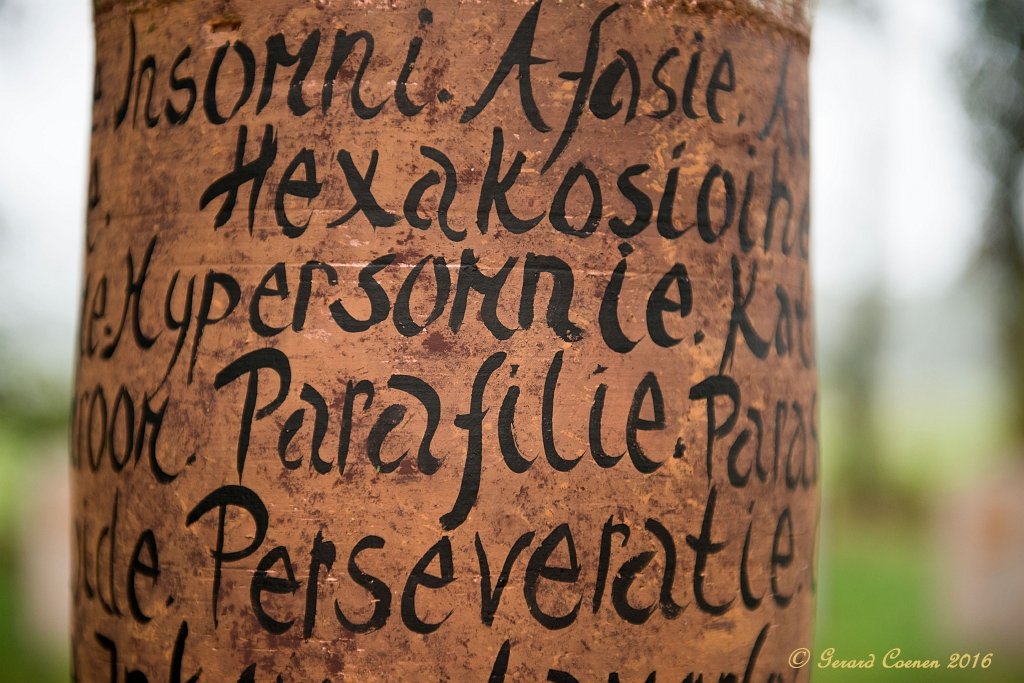 Insomni. Afasie.
Hexakosioih
e. Hypersomnie. Kat
room. Parafilie. Paras
ide. Perseveratie
© Gerard Coenen 2016